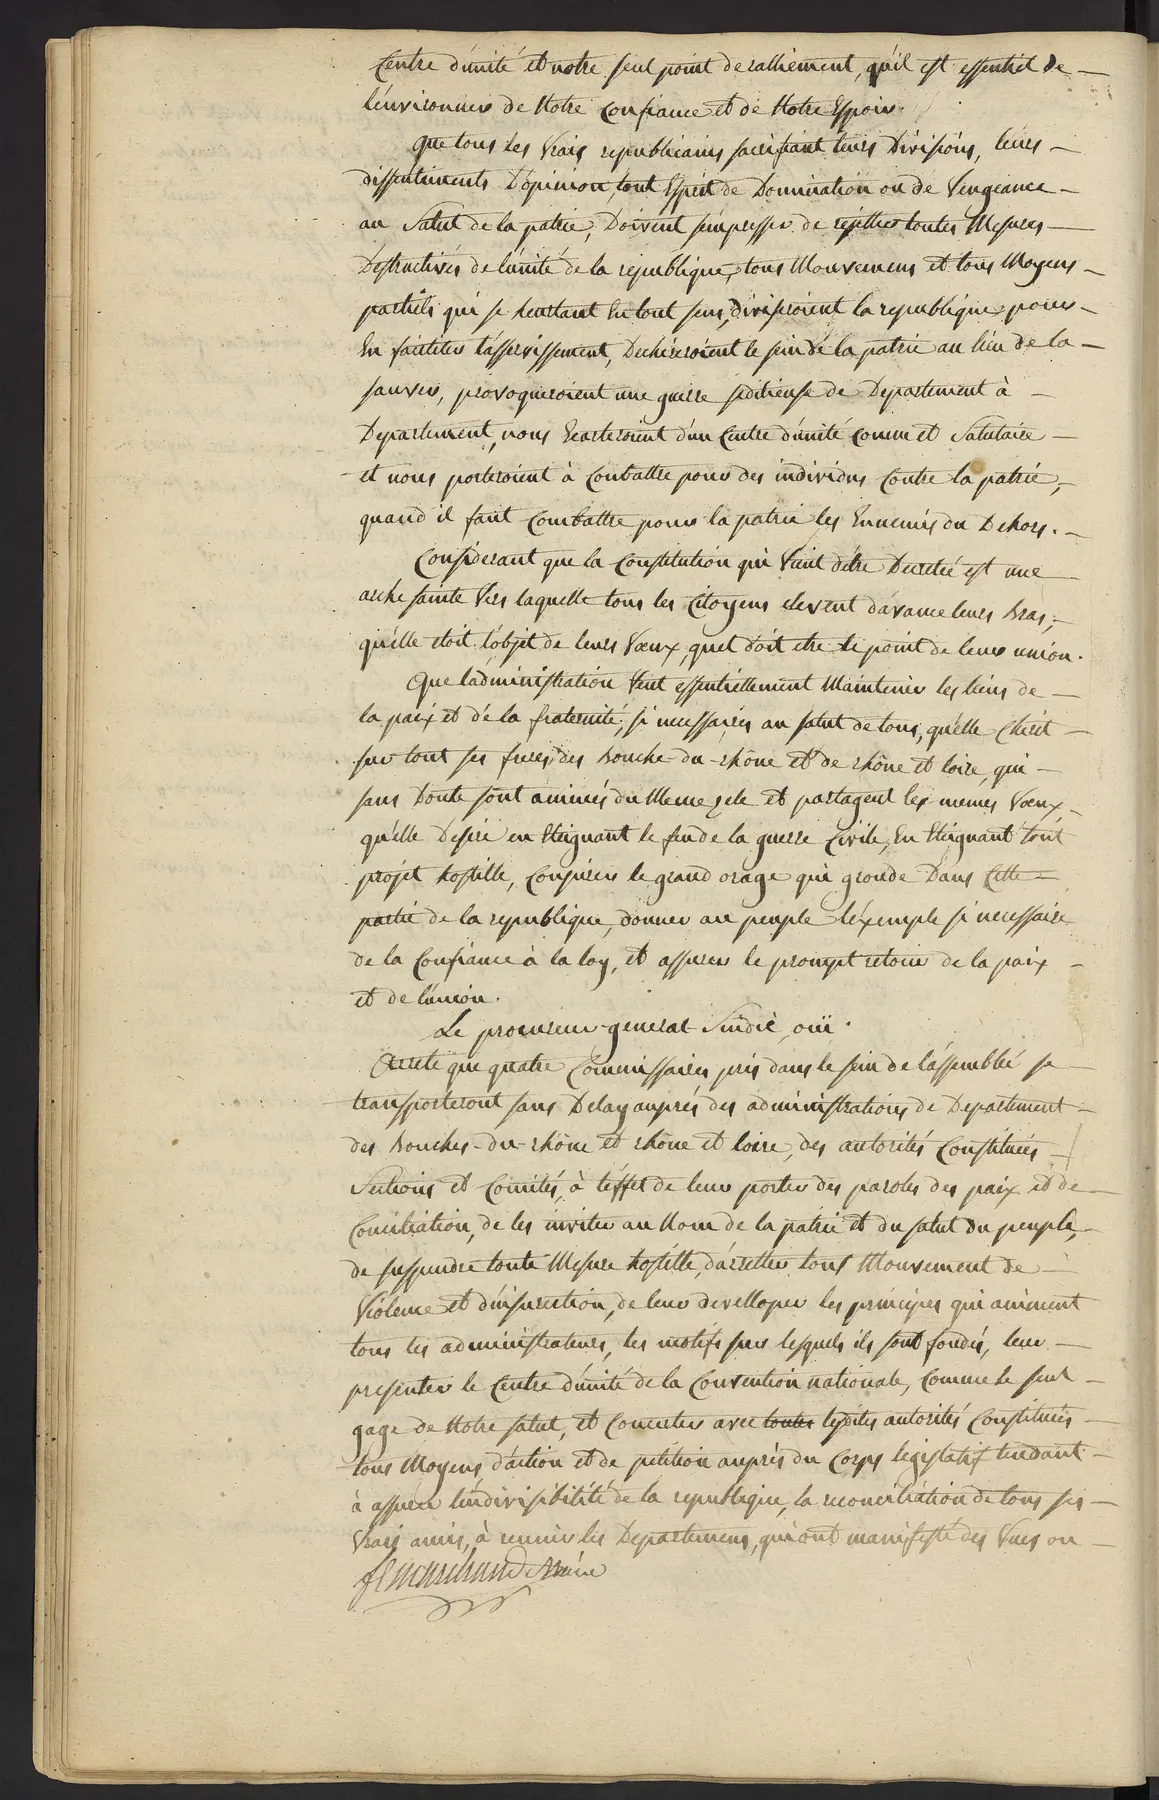 Centre d'unité et notre seul point de ralliement, qu'il est essentiel de —
l'environner de Notre Confiance et de Notre Espoir.
Que tous les Vrais republicains sacrifiant leurs Divisions, leurs —
dissentiments D'opinion, tout Esprit de Domination ou de Vengeance —
au Salut de la patrie, Doivent s'empresser de rejetter toutes Mesures —
Destructives de l'unité de la republique, tous Mouvemens et tous Moyens —
partiels qui se heurtant En tout sens, diviseroient la republique pour —
En faciliter l'asservissement, Dechireroient le sein de la patrie au lieu de la —
sauver, provoqueroient une guerre seditieuse de Departement à —
Departement, nous Ecarteroient d'un Centre d'unité Connu et Salutaire —
et nous porteroient à Conbattre pour des individus Contre la patrie, —
quand il faut Combattre pour la patrie les Ennemis du Dehors. —
Considerant que la Constitution qui Vient d'être Decretée est une
arche sainte Vers laquelle tous les Citoyens elevent d'avance leurs bras, —
qu'elle etoit l'objet de leurs Vœux, quel doit etre le point de leur union.
Que l'administration Veut essentiellement Maintenir les liens de —
la paix et de la fraternité, si necessaires au salut de tous, qu'elle Cherit —
sur tout ses freres des bouche-du-rhône et de rhône et loire, qui —
sans Doute sont animés du Meme zele et partagent les memes Vœux —
qu'elle Desire en Eteignant le feu de la guerre Civile, En Eteignant tout
projet hostille, Conjurer le grand orage qui gronde Dans Cette —
partie de la republique, donner au peuple l'exemple si necessaire
de la Confiance à la loy, et assurer le prompt retour de la paix —
et de l'union.
Le procureur-general-Sindic, oüi.
Arrete que quatre Commissaires pris dans le sein de l'assemblée se —
transporteront sans Delay auprés des administrations de Departement —
des bouches-du-rhône et rhône et loire, des autorités Constituées —
Sections et Comités, à l'effet de leur porter des paroles des paix et de —
Conciliation, de les inviter au Nom de la patrie et du salut du peuple, —
de suspendre toute Mesure hostille, d'arretter tout Mouvement de —
Violence et d'insurection, de leur developer les principes qui animent
tous les administrateurs, les motifs sur lesquels ils sont fondés, leur —
presenter le Centre d'unité de la Convention nationale, Comme le seul —
gage de Notre salut, et Concerter avec toutes lesdites autorités Constituées —
tous Moyens d'action et de petition auprès du Corps legislatif tendant —
à assurer l'indivisibilité de la republique, la reconciliation de tous ses —
Vrais amis, à reunir les Departemens, qui ont manifesté des Vues ou —